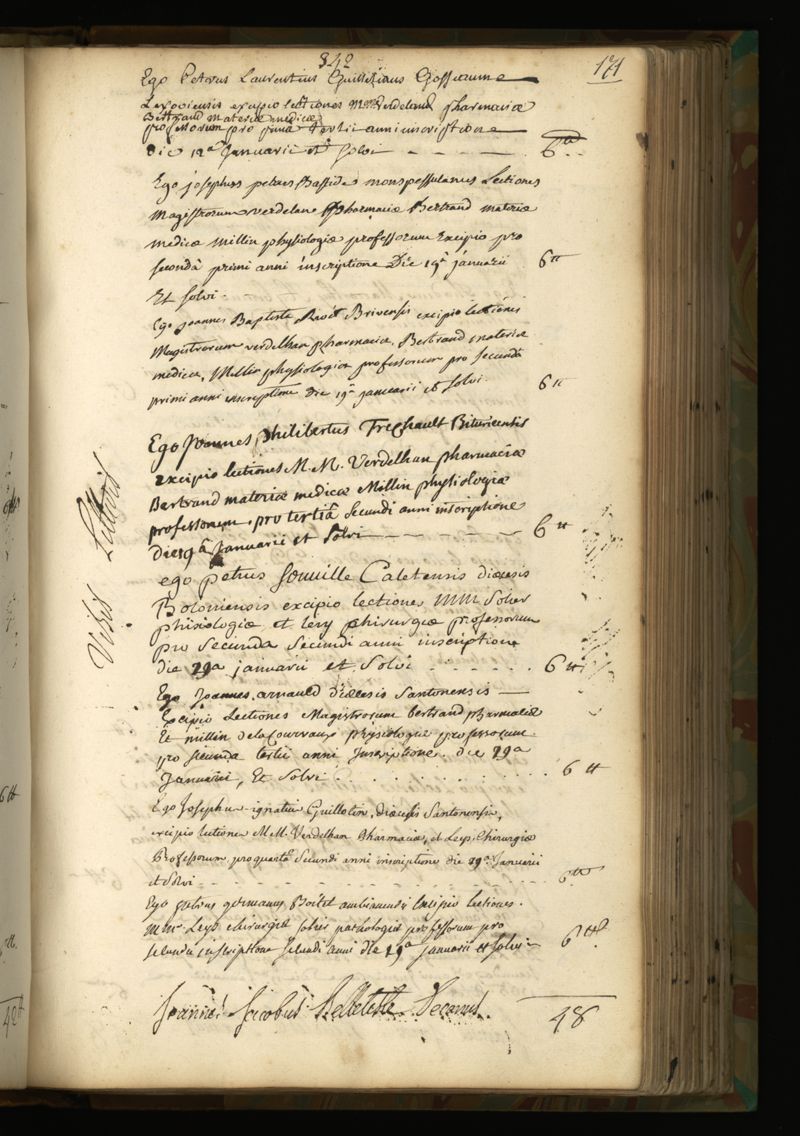 342
171
Ego Petrus Laurentius Guillelmus Gosseaume
Lexoviensis excipio lectiones Mrum verdelhan pharmaciæ
Bertrand materiæ medicæ
professorum pro prima tertii anni inscriptione
die 19a Januarii et solvi - - - - - 6tt
Ego josephus petrus Basside monspessulanus Lectiones
Magistrorum verdelane pharmaciæ Bertrand materiæ
medicæ Millin physiologiæ professorum Excipio pro
secondâ primi anni inscriptione Die 19a januarii 6tt
Et solvi.
Ego joannes Baptiste Brivensis excipio lectiones
Magistrorum verdelhan pharmaciæ, Bertrand materiæ
medicæ, Millin physiologiæ professorum pro secunda
primi anni inscriptione die 19a januarii et solvi. 6tt
Ego Joannes philibertus Trechault Bituricensis
excipio lectiones M.M. Verdelhan pharmaciæ
Bertrand materiæ medicæ Millin physiologiæ
professorum, pro tertiâ secundi anni inscriptione
die 19â januarii et solvi - - - - - 6tt
Visis Litteris
ego petrus souville Caletensis diœcesis
Boloniensis excipio lectiones MM solier
phisiologiæ et leys chirurgiæ professorum
pro secunda secundi anni inscription
die 29a januarii et solvi - - - - - - 6tt
Ego Joannes arnauld diœcesis Santonensis
Excipio Lectiones Magistrorum bertrand pharmaciæ
Et millin delaCourvault physiologiæ professorum
pro secunda tertii anni Inscriptione. die 29a
Januarii, Et solvi . . . . . . . . . . . 6tt
Ego Josephus-ignatius Guillotin, diœcesis Santonensis,
excipio lectiones M.M. Verdelhan Pharmaciæ, et Leys Chirurgiæ
Professorum, pro quartâ secundi anni inscriptione die 29a Januarii
et solvi - - - - - - - - - 6tt
Ego petrus germanus Boitel ambianensis Excipio lectiones.
MMrum Leys chirurgiæ solier pathologiæ professorum pro
secunda inscriptione secundi anni die 29a januarii et solvi - 6tt
Joannes Jacobus Belleteste Decanus. 48